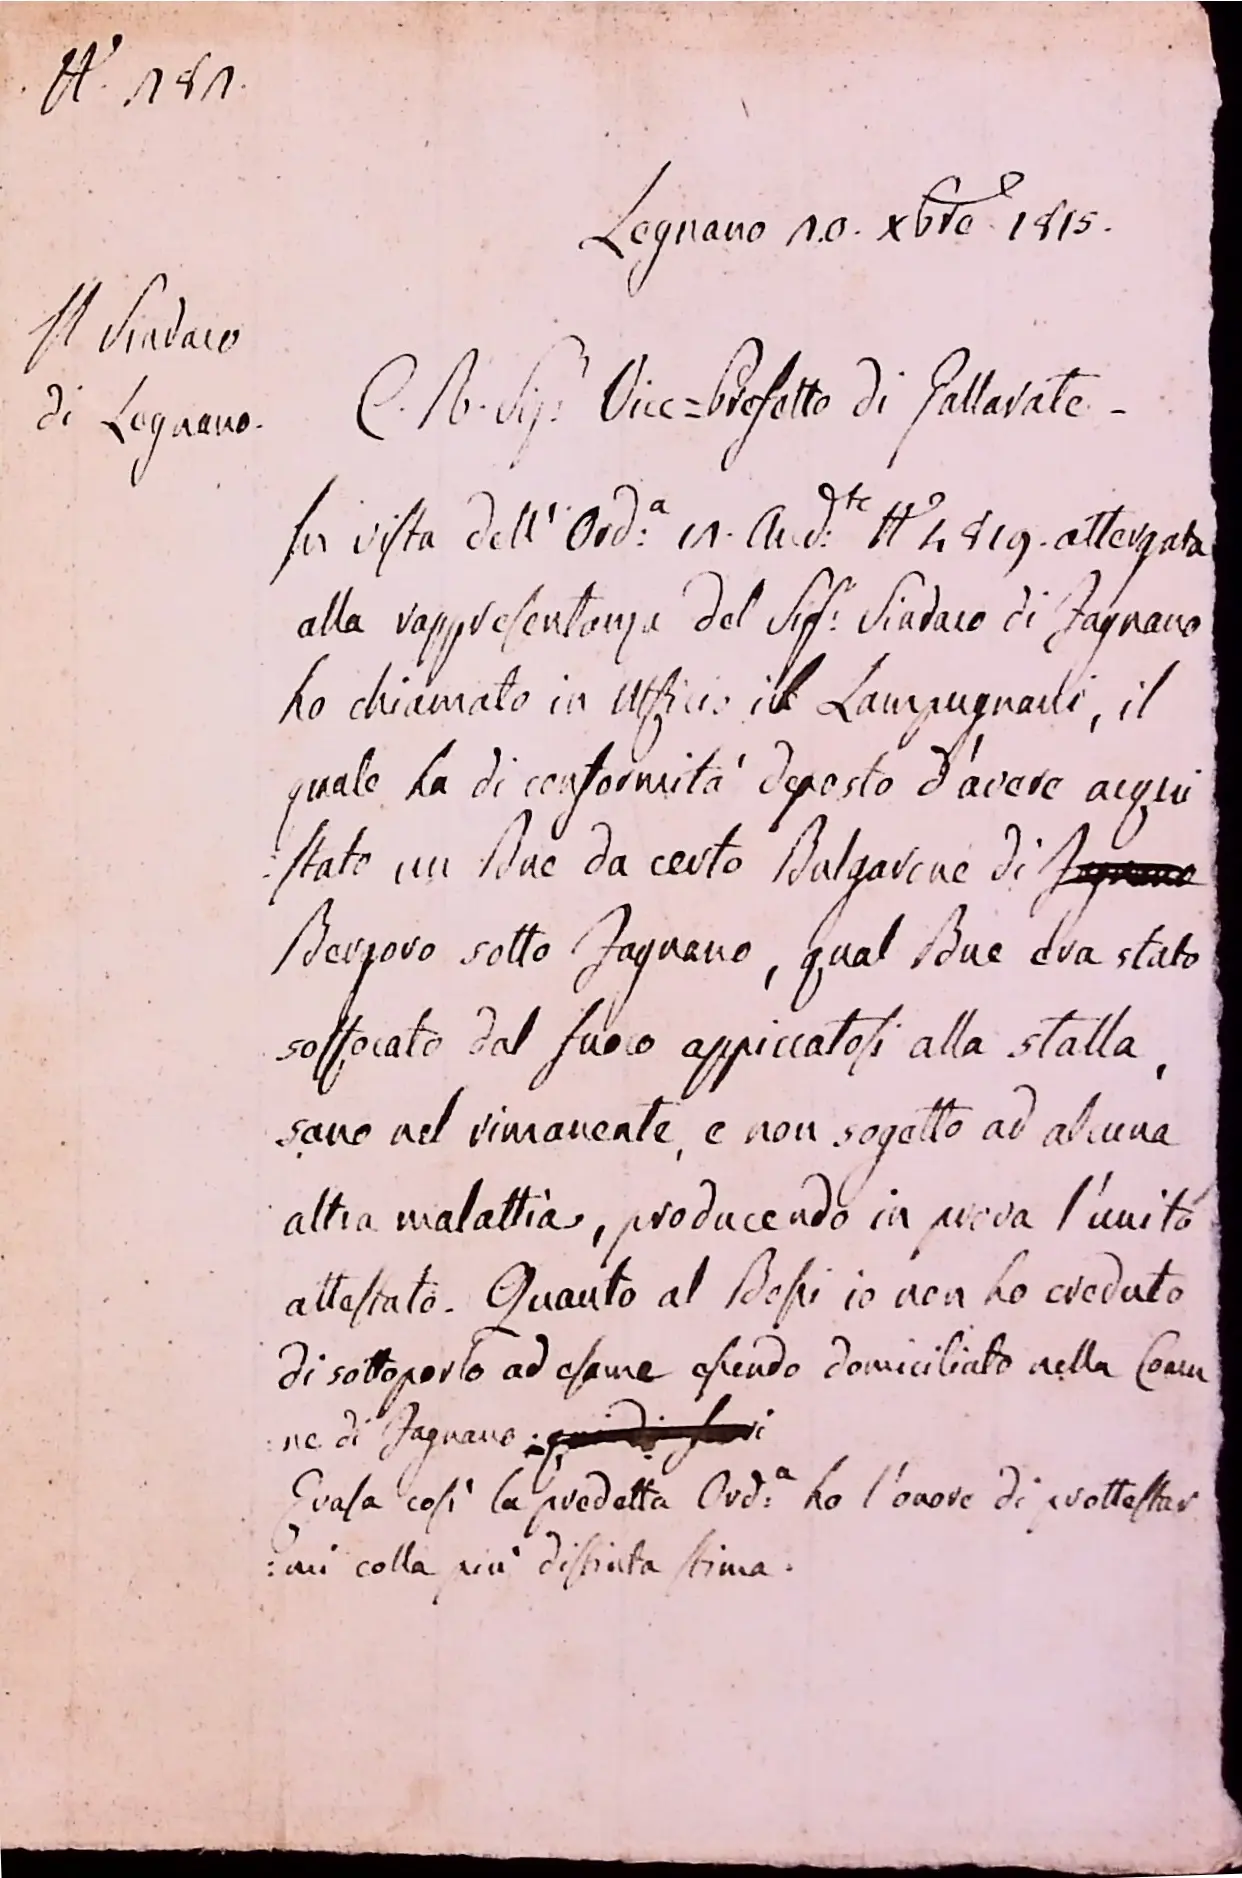 N.° 181.
Legnano 10. xbre 1815.
Il Sindaco
di Legnano.
C. R. Sig.r Vice=Prefetto di Gallarate -
In vista dell' Ord.a 11. And.te N.° 4819. attergata
alla rappresentanza del Sig.r Sindaco di Fagnano
ho chiamato in Ufficio il Lampugnani, il
quale ha di conformità deposto d'avere acqui
:stato un Bue da certo Bulgarone di Fagnano
Bergoro sotto Fagnano, qual Bue era stato
soffocato dal fuoco appiccatosi alla stalla,
sano nel rimanente, e non sogetto ad alcuna
altra malattia, producendo in prova l'unito
attestato. Quanto al Bossi io non ho creduto
di sottoporlo ad esame essendo domiciliato nella Comu
:ne di Fagnano.
Evasa così la predetta Ord.a ho l'onore di prottestar
:mi colla più distinta stima.